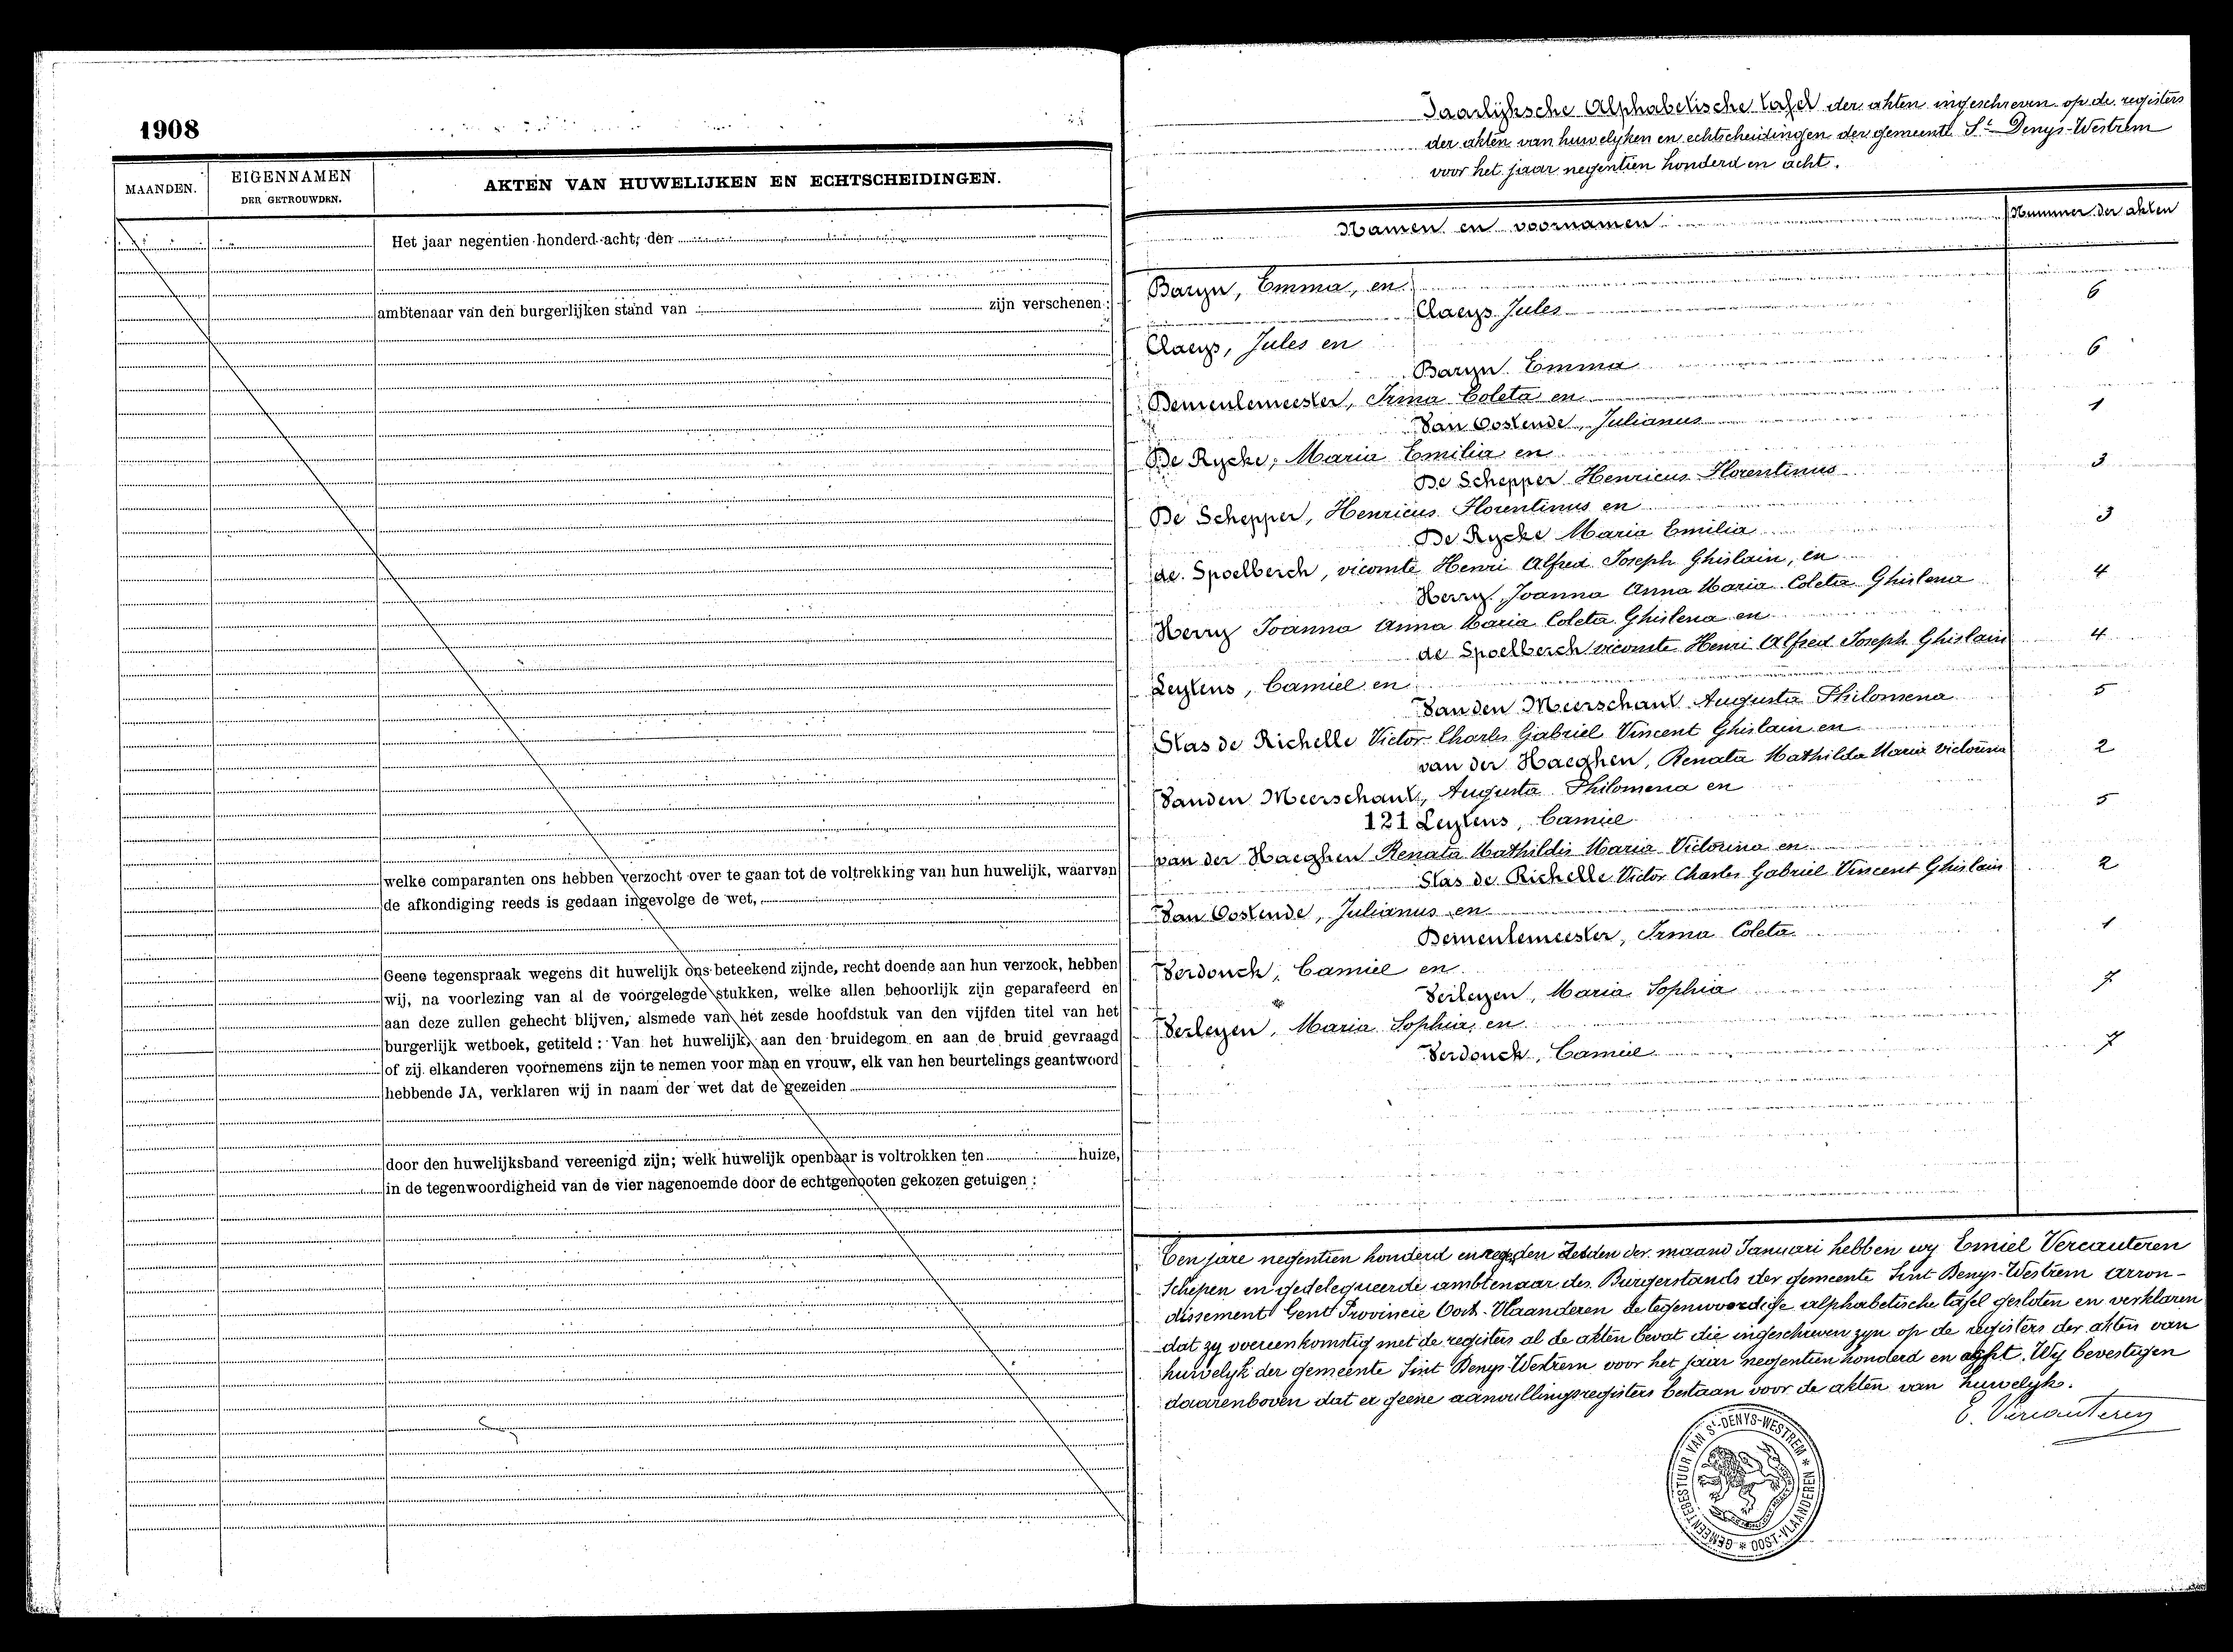 1908
MAANDEN.
EIGENNAMEN
DER GETROUWDEN.
AKTEN VAN HUWELIJKEN EN ECHTSCHEIDINGEN.
Het jaar negentien honderd acht, den
ambtenaar van den burgerlijken stand van zijn verschenen:
welke comparanten ons hebben verzocht over te gaan tot de voltrekking van hun huwelijk, waarvan
de afkondiging reeds is gedaan ingevolge de wet,
Geene tegenspraak wegens dit huwelijk ons beteekend zijnde, recht doende aan hun verzoek, hebben
wij, na voorlezing van al de voorgelegde stukken, welke allen behoorlijk zijn geparafeerd en
aan deze zullen gehecht blijven, alsmede van het zesde hoofdstuk van den vijfden titel van het
burgerlijk wetboek, getiteld: Van het huwelijk, aan den bruidegom en aan de bruid gevraagd
of zij elkanderen voornemens zijn te nemen voor man en vrouw, elk van hen beurtelings geantwoord
hebbende JA, verklaren wij in naam der wet dat de gezeiden
door den huwelijksband vereenigd zijn; welk huwelijk openbaar is voltrokken ten huize,
in de tegenwoordigheid van de vier nagenoemde door de echtgenooten gekozen getuigen:
Jaarlijksche Alphabetische tafel der akten ingeschreven op de registers
der akten van huwelijken en echtscheidingen der gemeente St Denys-Westrem
voor het jaar negentien honderd en acht.
Namen en voornamen Nummer der akten
Baryn, Emma, en
Claeys Jules 6
Claeys, Jules en
Baryn Emma 6
Demeulemeester, Irma Coleta en
Van Oostende, Julianus 1
De Rycke, Maria Emilia en
De Schepper Henricus Florentinus 3
De Schepper, Henricus Florentinus en
De Rycke Maria Emilia 3
de Spoelberch, vicomte Henri Alfred Joseph Ghislain, en
Herry, Joanna Anna Maria Coleta Ghislena 4
Herry Joanna Anna Maria Coleta Ghislena en
de Spoelberch vicomte Henri Alfred Joseph Ghislain 4
Leytens, Camiel en
Vanden Meerschaut Augusta Philomena 5
Stas de Richelle Victor Charles Gabriel Vincent Ghislain en
van der Haeghen, Renata Mathilda Maria Victorina 2
Vanden Meerschaut, Augusta Philomena en
121 Leytens, Camiel 5
van der Haeghen Renata Mathildis Maria Victorina en
Stas de Richelle Victor Charles Gabriel Vincent Ghislain 2
Van Oostende, Julianus en
Demeulemeester, Irma Coleta 1
Verdonck, Camiel en
Verleyen, Maria Sophia 7
Verleyen, Maria Sophia, en
Verdonck, Camiel 7
Ten jare negentien honderd en negen den zesden der maand Januari hebben wy Emiel Vercauteren
Schepen en gedelegueerde ambtenaar des Burgerstands der gemeente Sint Denys-Westrem arron-
dissement Gent Provincie Oost-Vlaanderen de tegenwoordige alphabetische tafel gesloten en verklaren
dat zy overeenkomstig met de registers al de akten bevat die ingeschreven zyn op de registers der akten van
huwelyk der gemeente Sint Denys-Westrem voor het jaar negentien honderd en acht. Wy bevestigen
daarenboven dat er geene aanvullingsregisters bestaan voor de akten van huwelyk.
E. Vercauteren
GEMEENTEBESTUUR VAN St-DENYS-WESTREM * OOST-VLAANDEREN *